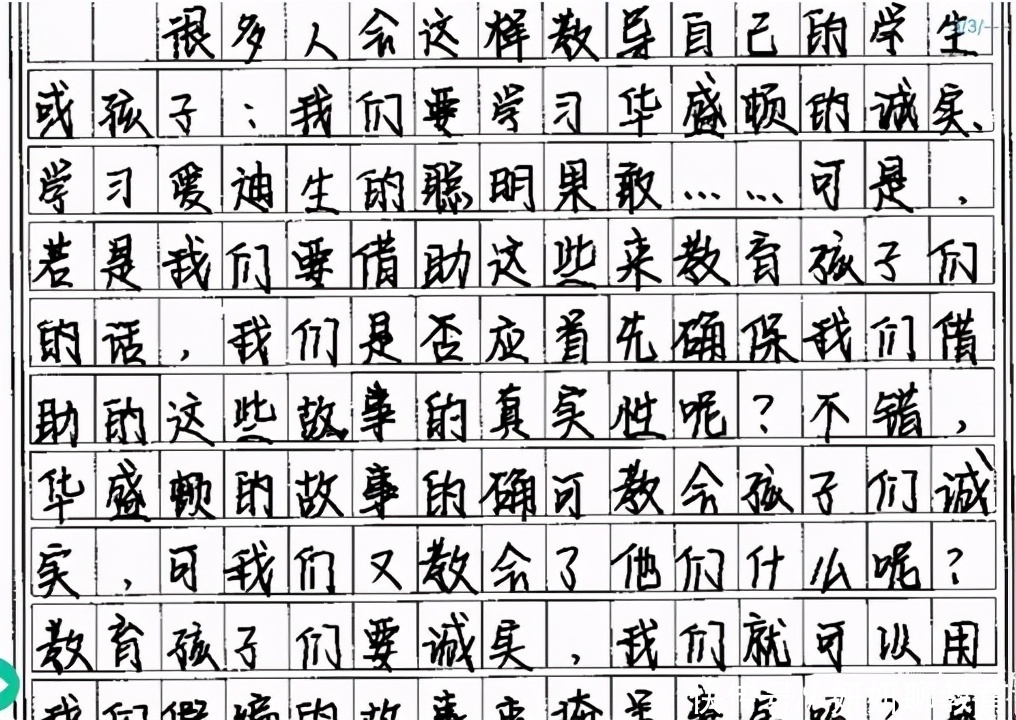 很多人会这样教导自己的学生
或孩子：我们要学习华盛顿的诚实、
学习爱迪生的聪明果敢……可是，
若是我们要借助这些来教育孩子们
的话，我们是否应首先确保我们借
助的这些故事的真实性呢？不错，
华盛顿的故事的确可教会孩子们诚
实，可我们又教会了他们什么呢？
教育孩子们要诚实，我们就可以用
我们假造的故事来